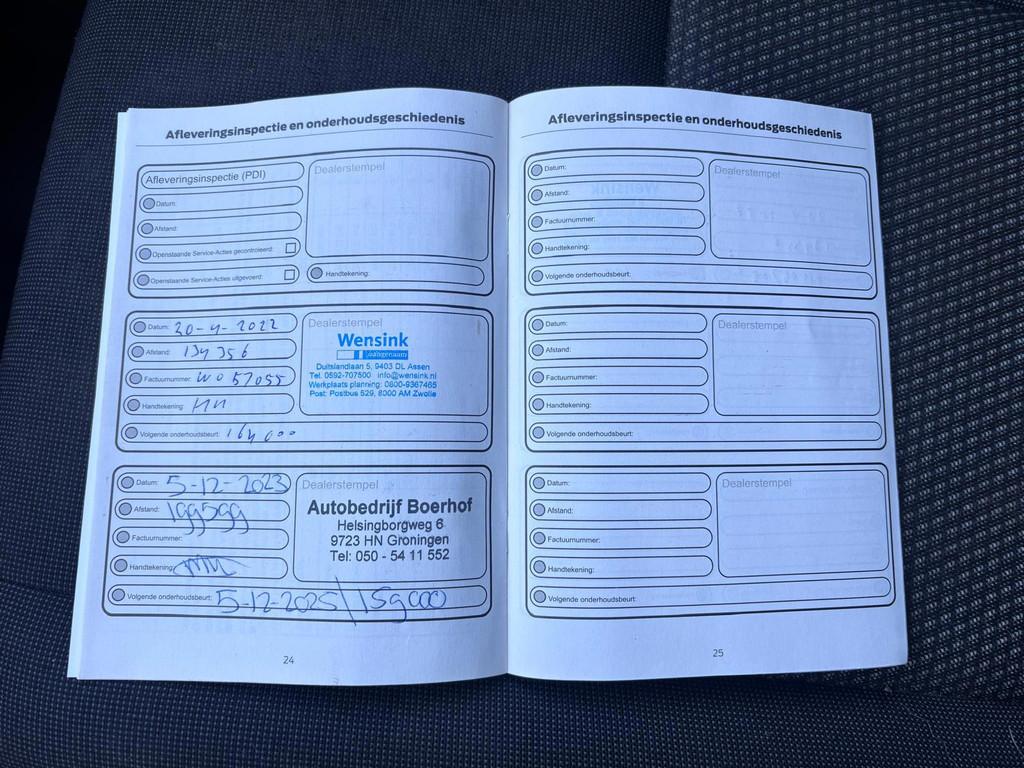 Afleveringsinspectie en onderhoudsgeschiedenis
Afleveringsinspectie (PDI)
Datum:
Afstand:
Openstaande Service-Acties gecontroleerd:
Openstaande Service-Acties uitgevoerd:
Dealerstempel
Handtekening:
Datum: 20-4-2022
Afstand: 134 356
Factuurnummer: WO 57055
Handtekening:
Volgende onderhoudsbeurt: 164 000
Dealerstempel
Wensink
Duitslandlaan 5, 9403 DL Assen
Tel. 0592-707500 info@wensink.nl
Werkplaats planning: 0800-9367465
Post: Postbus 529, 8000 AM Zwolle
Datum: 5-12-2023
Afstand: 199599
Factuurnummer:
Handtekening:
Volgende onderhoudsbeurt: 5-12-2025 / 159000
Dealerstempel
Autobedrijf Boerhof
Helsingborgweg 6
9723 HN Groningen
Tel: 050 - 54 11 552
24
Afleveringsinspectie en onderhoudsgeschiedenis
Datum:
Afstand:
Factuurnummer:
Handtekening:
Volgende onderhoudsbeurt:
Dealerstempel
Datum:
Afstand:
Factuurnummer:
Handtekening:
Volgende onderhoudsbeurt:
Dealerstempel
Datum:
Afstand:
Factuurnummer:
Handtekening:
Volgende onderhoudsbeurt:
Dealerstempel
25